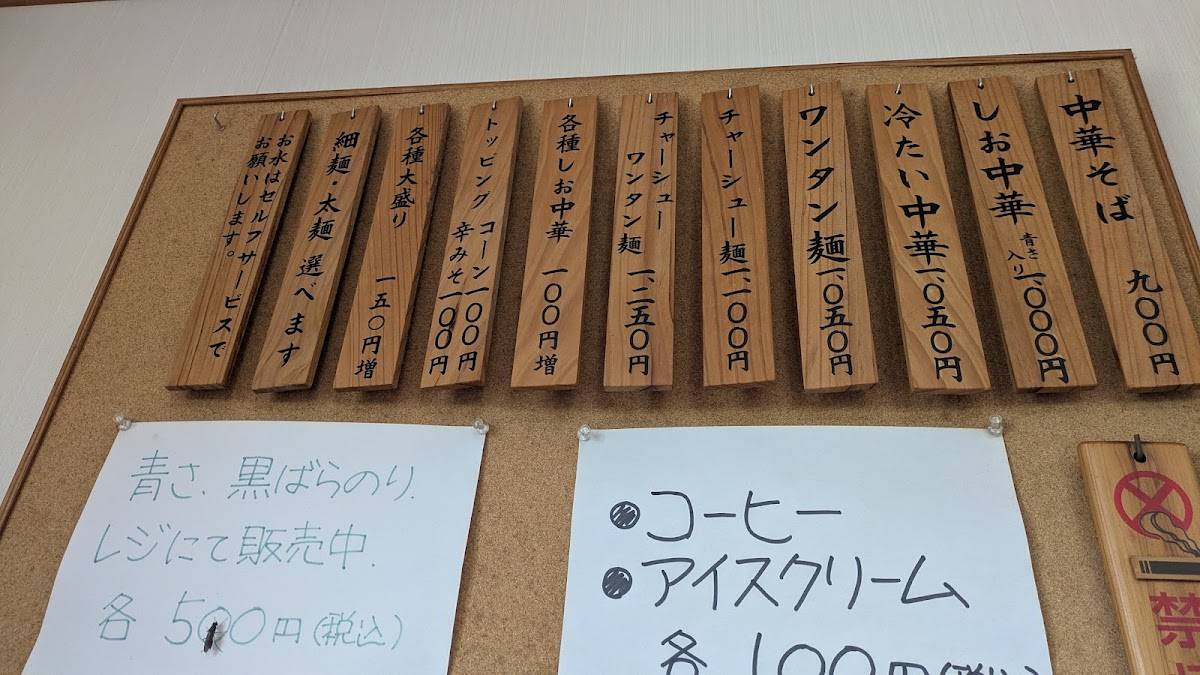 中華そば 九〇〇円
しお中華 青さ入り 一、〇〇〇円
冷たい中華 一、〇五〇円
ワンタン麺 一、〇五〇円
チャーシュー麺 一、一〇〇円
チャーシュー
ワンタン麺 一、二五〇円
各種しお中華 一〇〇円増
トッピング コーン 一〇〇円
辛みそ 一〇〇円
各種大盛り 一五〇円増
細麺・太麺 選べます
お水はセルフサービスで
お願いします。
青さ、黒ばらのり、
レジにて販売中.
各 500円(税込)
●コーヒー
●アイスクリーム
各 100円(税込)
禁